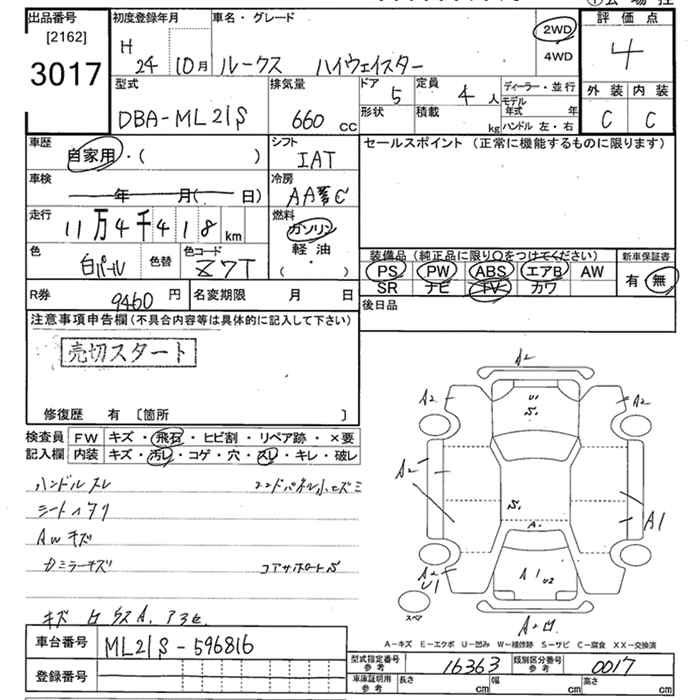 出品番号
[2162]
3017
初度登録年月
H 24 10月
車名・グレード
ルークス ハイウェイスター
2WD
4WD
評価点
4
外装 内装
C C
型式
DBA-ML21S
排気量
660 cc
ドア 5
形状
定員 4 人
積載 kg
ディーラー・並行
モデル年式 年
ハンドル 左・右
車歴
自家用・( )
シフト
IAT
セールスポイント (正常に機能するものに限ります)
車検
年 月( 日)
冷房
AAC
走行
11万4千418 km
燃料
ガソリン
軽油・
( )
色
白パール
色替
色コード
Z7T
装備品 (純正品に限り○をつけてください)
PS PW ABS エアB AW
SR ナビ TV カワ
新車保証書
有・無
R券 9460 円
名変期限 月 日
後日品
注意事項申告欄 (不具合内容等は具体的に記入して下さい)
売切スタート
修復歴 有 [箇所 ]
検査員記入欄
FW キズ・飛石・ヒビ割・リペア跡・×要
内装 キズ・汚レ・コゲ・穴・スレ・キレ・破レ
ハンドルスレ
シートヘタリ
AWキズ
A2
U1
S.
A2
A2
A2
S.
A.
A1
A2
U1
A1
U2
スペア
A-キズ E-エクボ U-凹み W-補修跡 S-サビ C-腐食 XX-交換済
車台番号
ML21S-596816
登録番号
型式指定番号 参考
16363
類別区分番号 参考
0017
車庫証明用 参考
長さ cm 幅 cm 高さ cm